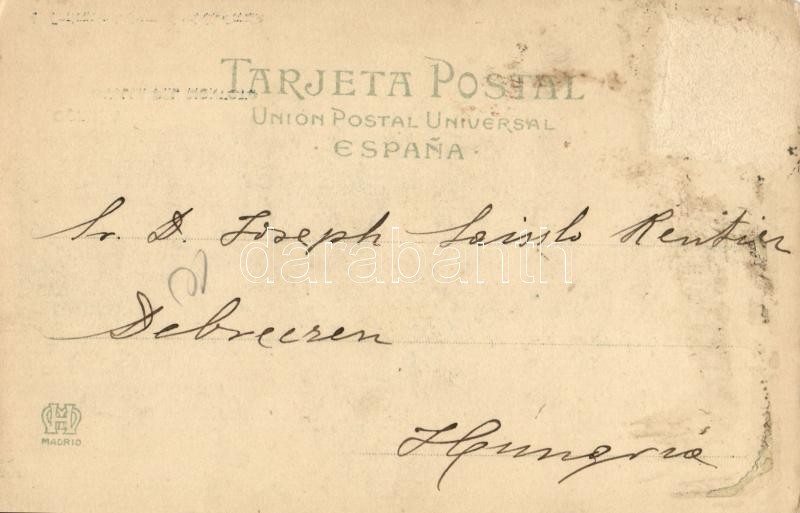 TARJETA POSTAL
UNIÓN POSTAL UNIVERSAL
· ESPAÑA ·
Sr. D. Joseph Laiszlo Rentier
darabanth
Debreczen
Hungria
MADRID